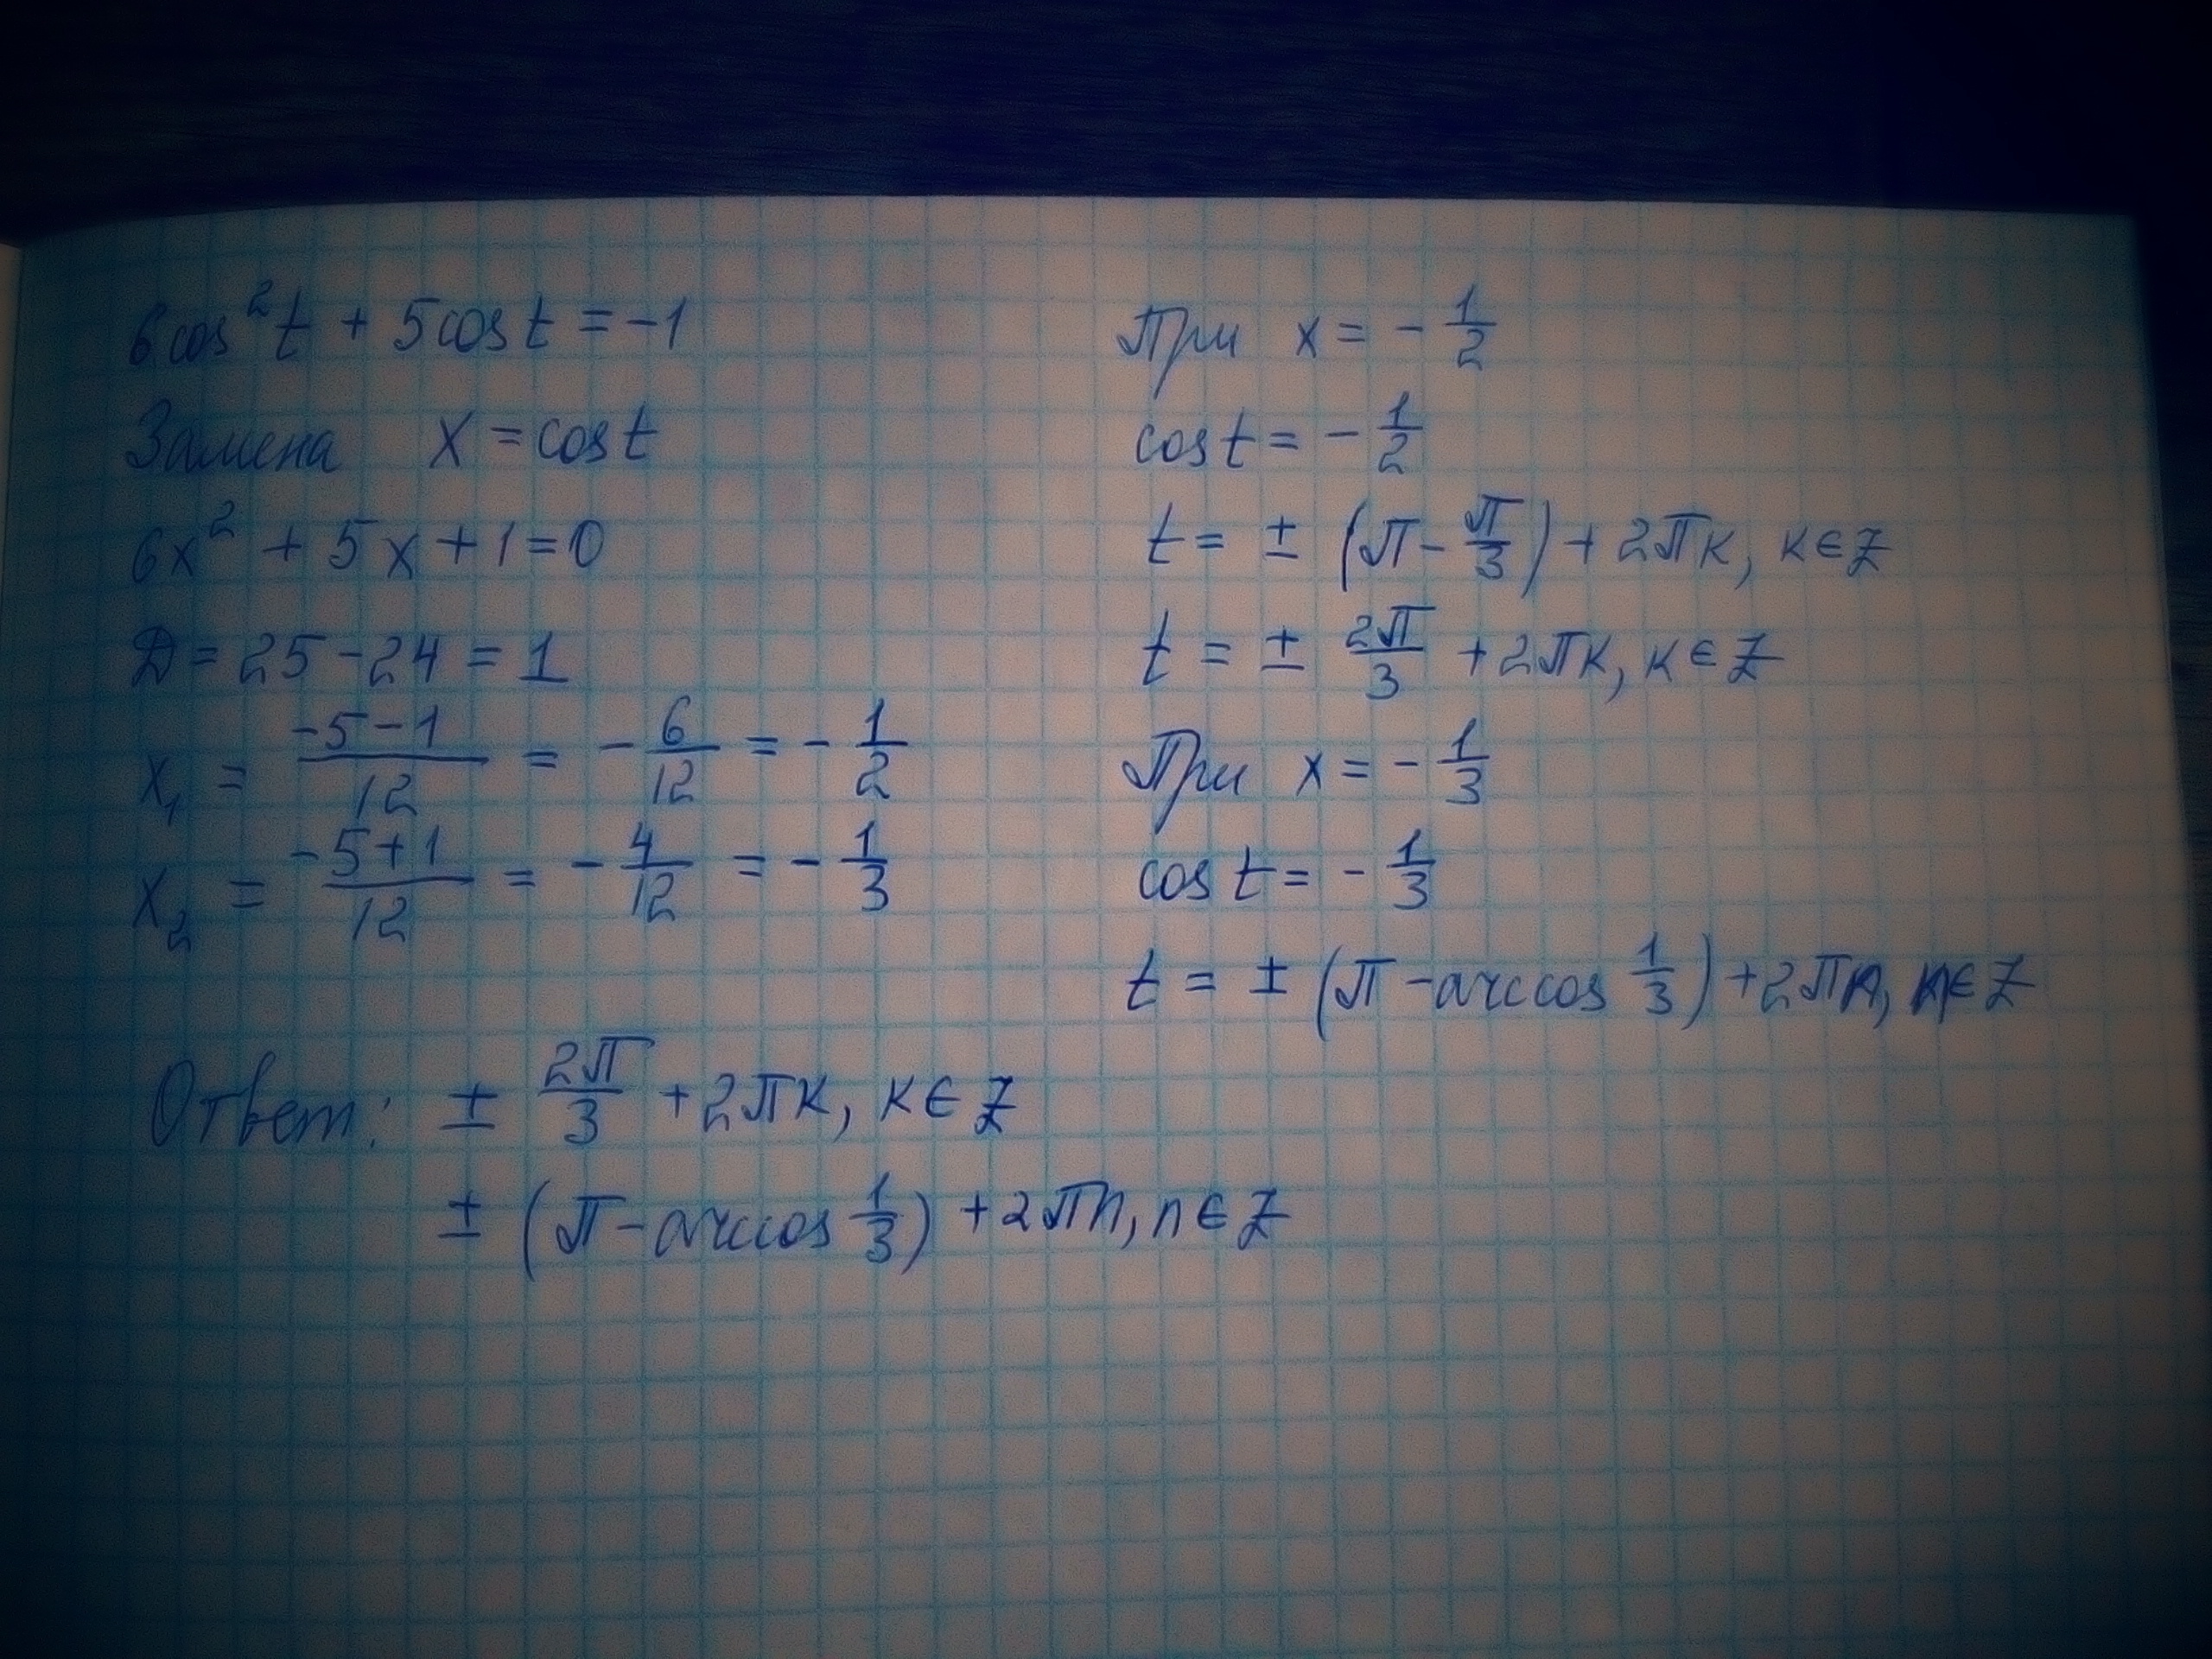 6cos²t + 5cost = -1
Замена x = cost
6x² + 5x + 1 = 0
Д = 25 - 24 = 1
x₁ = (-5-1)/12 = -6/12 = -1/2
x₂ = (-5+1)/12 = -4/12 = -1/3
При x = -1/2
cost = -1/2
t = ± (π - π/3) + 2πк, к ∈ Z
t = ± 2π/3 + 2πк, к ∈ Z
При x = -1/3
cost = -1/3
t = ± (π - arccos 1/3) + 2πn, n ∈ Z
Ответ: ± 2π/3 + 2πк, к ∈ Z
± (π - arccos 1/3) + 2πn, n ∈ Z